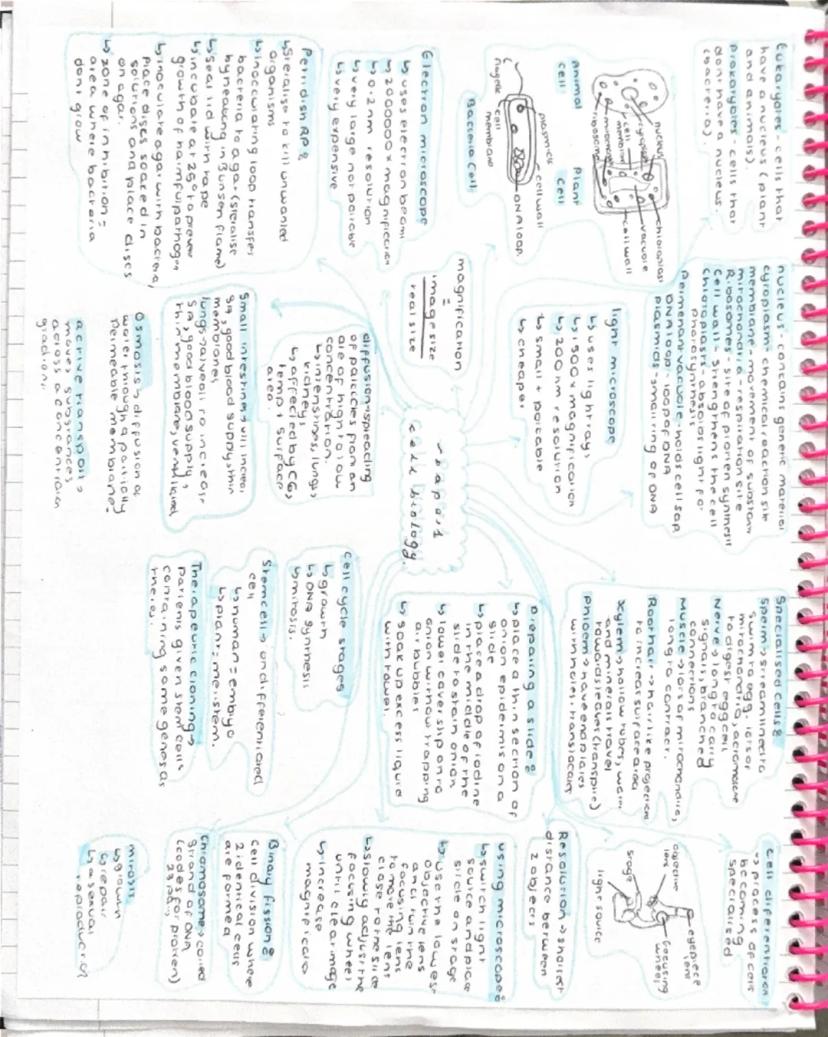 Eukaryotes - cells that
have a nucleus (plant
and animals).
Prokaryotes - cells that
dont have a nucleus.
(bacteria).
nucleus
cytoplasm
cell
membrane
mitochondria
ribosomes
chloroplast
vacuole
cell wall
animal
cell
Plant
cell
plasmids
cell wall
DNA loop
flagella
cell
membrane
Bacteria cell
nucleus - contains genetic material
cytoplasm - chemical reaction site
membrane - movement of substance
mitochondria - respiration site
Ribosomes - site of protein synthesis
Cell wall - strengthens the cell
chloroplasts - absorbs light for
photosynthesis
permenant vacuole - holds cell sap
DNA loop - loop of DNA
plasmids - small ring of DNA
Specialised cells:
Sperm → streamlined to
swim to egg. lots of
mitochondria, acrosome
to digest egg cell
Nerve → long to carry
signals, branched
connections
Muscle → lots of mitochondria,
long to contract.
Root hair → hair like projections
to increase surface area
Xylem → hollow tubes, water
and minerals travel
towards leaves (transpire)
Phloem → have end plates
with holes, translocation
Cell differentiation:
→ process of cells
becoming
specialised
eyepiece
lens
objective
lens
focusing
wheel
stage
light source
Electron microscope
↳ uses electron beams
↳ 2000000x magnification
↳ 0.2nm resolution
↳ very large not portable
↳ very expensive
magnification
=
image size
real size
light microscope
↳ uses light rays
↳ 1500x magnification
↳ 200nm resolution
↳ small + portable
↳ cheaper
Preparing a slide:
↳ place a thin section of
onion epidermis on a
slide
↳ place a drop of iodine
in the middle of the
slide to stain onion
↳ lower cover slip onto
onion without trapping
air bubbles
↳ soak up excess liquid
with towel.
Resolution → shortest
distance between
2 objects
using microscopes:
↳ switch light
source and place
slide on stage
↳ use the lowest
objective lens
and turn the
focusing lens
to move the lens
close to the slide
↳ slowly adjust the
focusing wheel
until clear image
↳ increase
magnification
biology paper 1
cell biology.
Petri dish RP:
↳ sterialise to kill unwanted
organisms
↳ inoculating loop transfers
bacteria to agar (sterialise
by heating in Bunsen flame)
↳ seal lid with tape
↳ incubate at 25° to prevent
growth of harmful pathogen
↳ inoculate agar with bacteria,
place discs soaked in
solutions and place discs
on agar.
↳ zone of inhibition =
area where bacteria
dont grow
diffusion → spreading
of particles from an
are of high to low
concentration.
↳ intenstines, lungs,
kidneys
↳ affected by CG,
temp + surface
area.
Small intestine → villi increase
SA, good blood supply, thin
membranes
lungs → alveoli to increase
SA, good blood supply,
thin membrane, ventilated
Osmosis → diffusion of
water through a partially
permeable membrane.
active transport →
moves substances
across a concentration
gradient.
Cell cycle stages
↳ growth
↳ DNA synthesis
↳ mitosis.
Stem cell → undifferentiated
cell
↳ human = embryo
↳ plant = meristem.
Therapeutic cloning →
patients given stem cells
containing same genes as
theirs.
Binary fission:
cell division where
2 identical cells
are formed
Chromosome → coiled
strand of DNA
(codes for protein)
23 pairs
mitosis
↳ growth
↳ repair
↳ asexual
reproduction